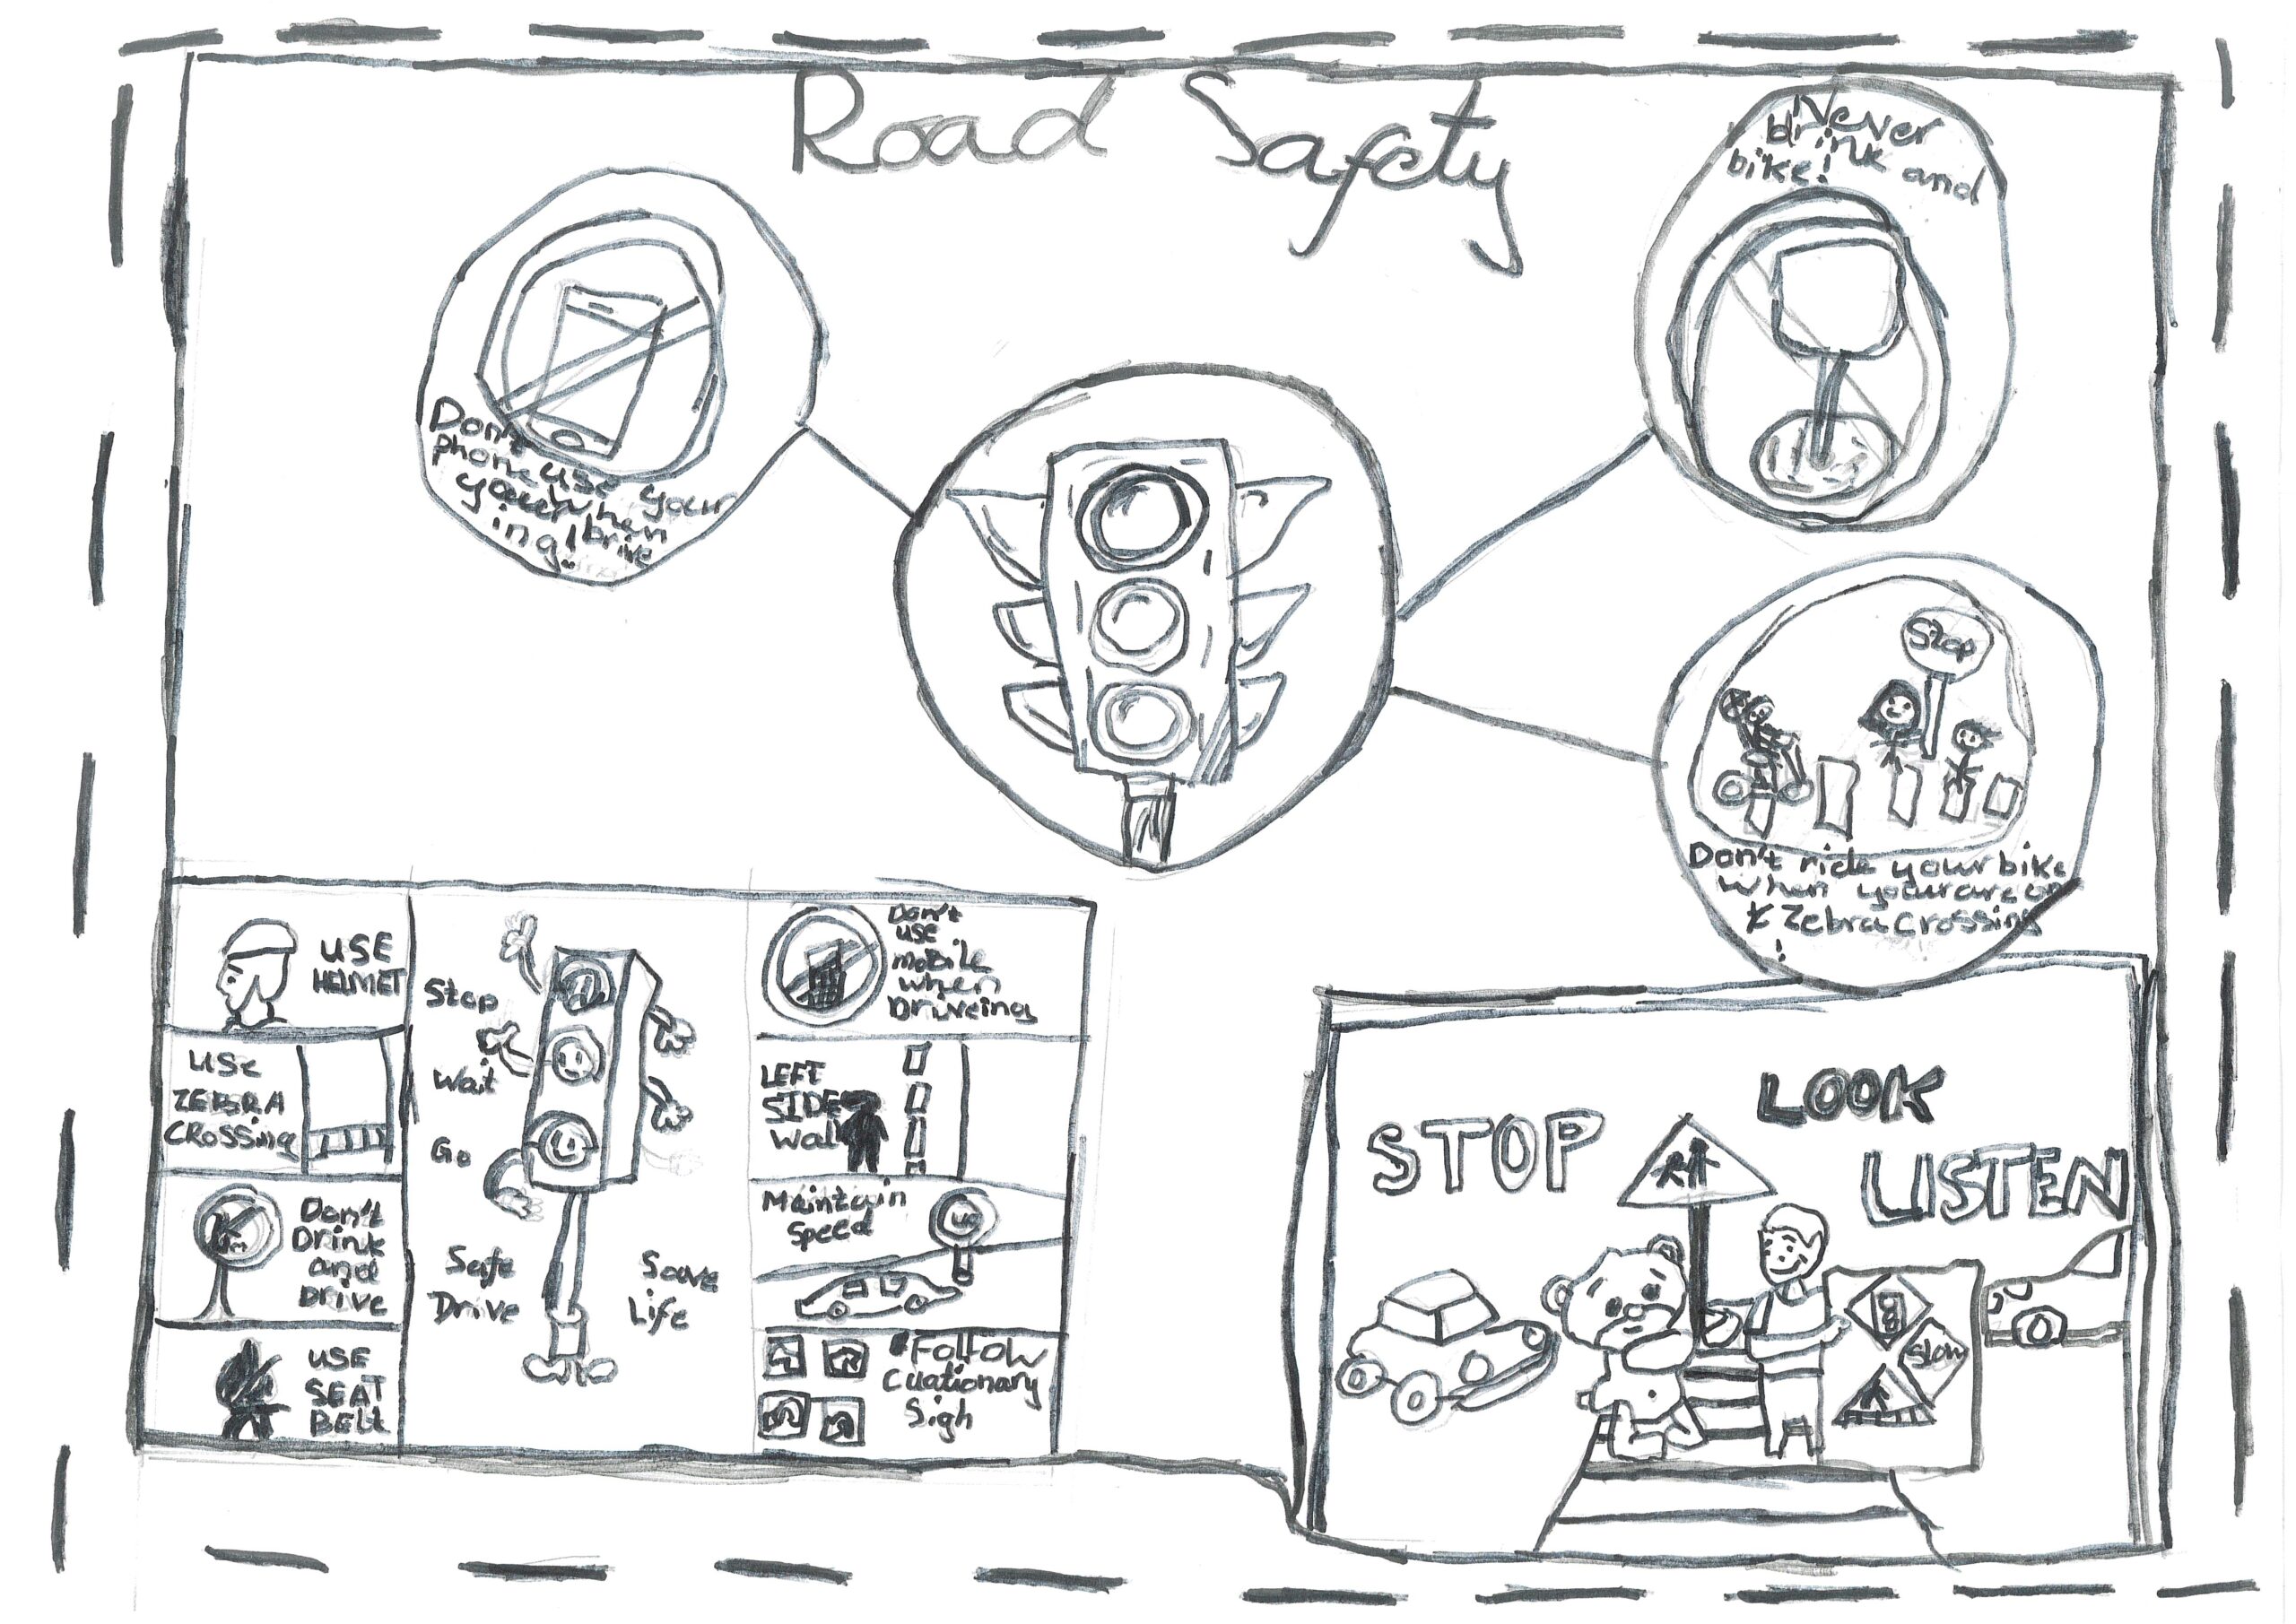 Road Safety
Never
drink and
bike!
Don't
phone use your
when
ing! Drive
Stop
Don't ride your bike
when your are on
Zebra Crossing
!
USE
HELMET
USE
ZEBRA
CROSSing
Don't
Drink
and
Drive
USE
SEAT
BELt
Stop
Wait
Go
Safe
Drive
Save
Life
Don't
use
moBile
when
Driveing
LEFT
SIDE
Walk
Maintain
Speed
Follow
Cuationary
Sigh
STOP
LOOK
LISTEN
SLOW